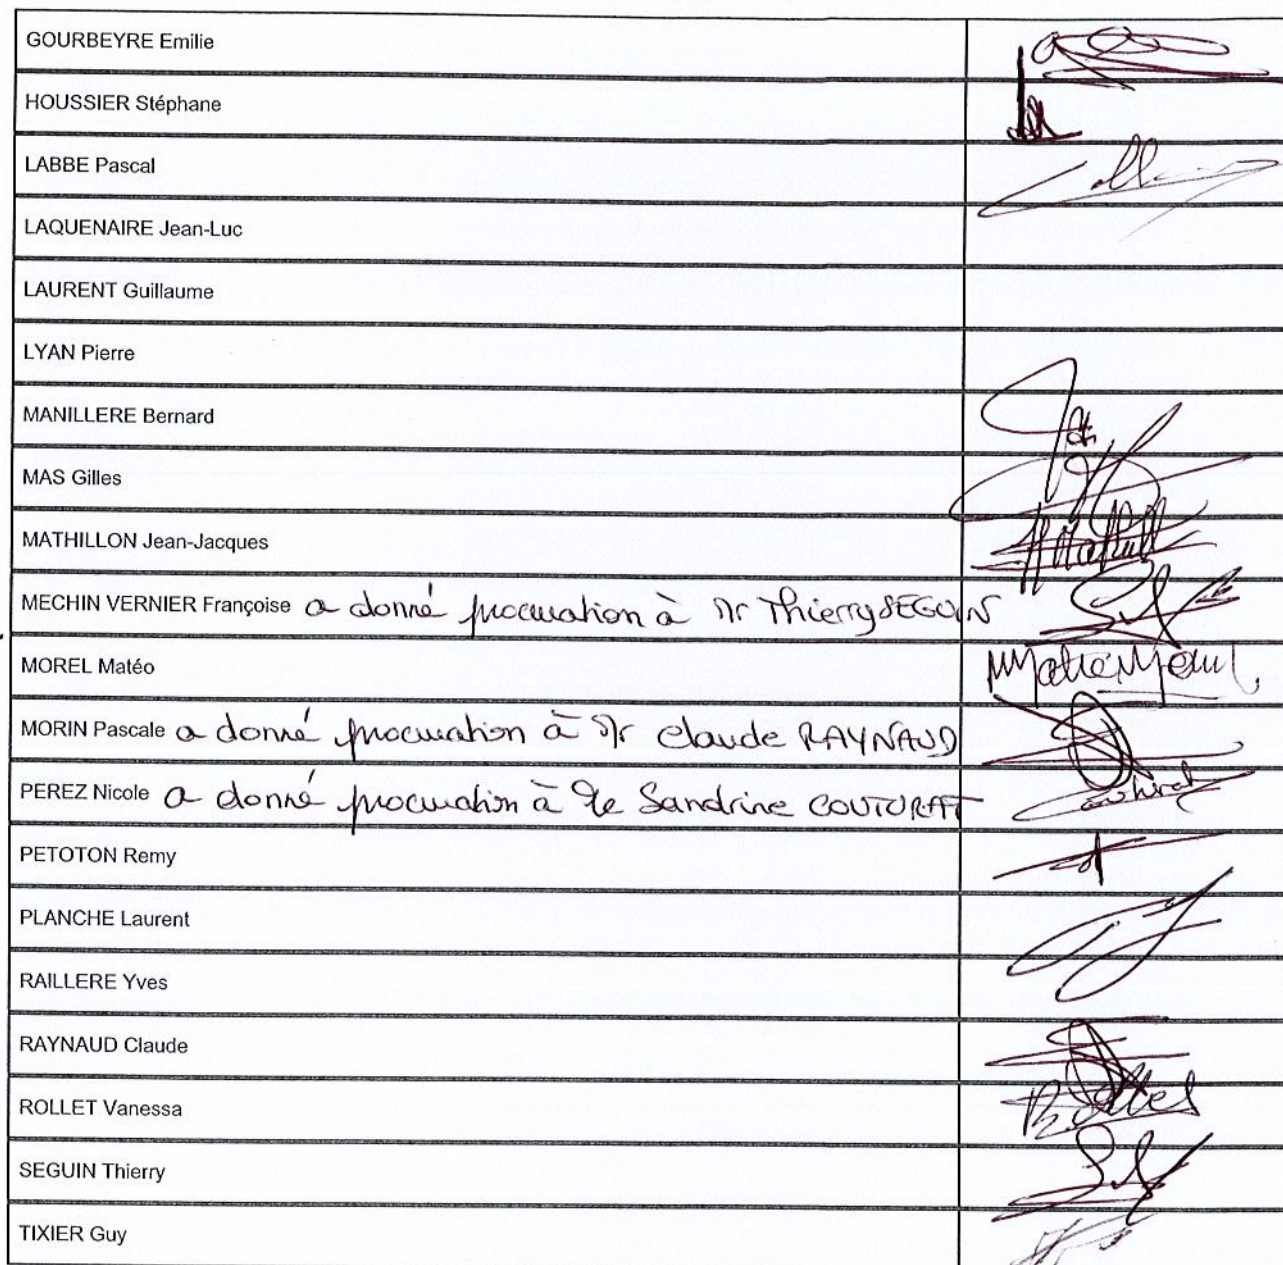 GOURBEYRE Emilie
HOUSSIER Stéphane
LABBE Pascal
LAQUENAIRE Jean-Luc
LAURENT Guillaume
LYAN Pierre
MANILLERE Bernard
MAS Gilles
MATHILLON Jean-Jacques
MECHIN VERNIER Françoise a donné procuration à Mr Thierry SEGUIN
MOREL Matéo
MORIN Pascale a donné procuration à Mr Claude RAYNAUD
PEREZ Nicole a donné procuration à Sandrine COUTURAT
PETOTON Remy
PLANCHE Laurent
RAILLERE Yves
RAYNAUD Claude
ROLLET Vanessa
SEGUIN Thierry
TIXIER Guy